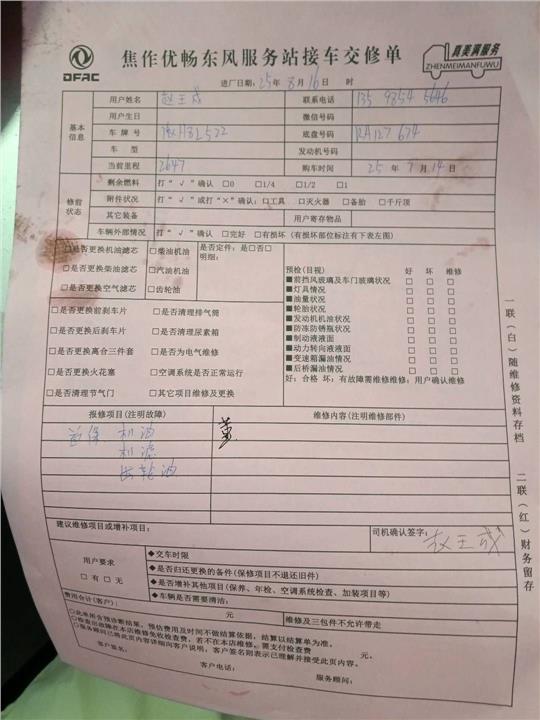 DFAC
焦作优畅东风服务站接车交修单
真美满服务
ZHENMEIMANFUWU
进厂日期:25年8月16日 时
基本信息
用户姓名 赵玉成 联系电话 135 9854 5646
用户生日 微信号码
车牌号 豫HBL522 底盘号码 RA127674
车型 发动机号码
当前里程 2647 购车时间 25年7月14日
修前状态
剩余燃料 打“√”确认 □0 □1/4 □1/2 □1
附件状况 打“√”或打“×”确认:□工具 □灭火器 □备胎 □千斤顶
其它装备 用户寄存物品
车辆外部情况 打“√”确认 □完好 □有损坏(有损部位标注有下表左图)
□是否更换机油滤芯 □柴油机油 是否定件:是□否□
明细:
□是否更换柴油滤芯 □汽油机油
□是否更换空气滤芯 □齿轮油
□是否更换前刹车片 □是否清理排气筒
□是否更换后刹车片 □是否清理尿素箱
□是否更换离合三件套 □是否为电气维修
□是否更换火花塞 □空调系统是否正常运行
□是否清理节气门 □其它项目维修及更换
预检(目视) 好 坏 维修
■前挡风玻璃及车门玻璃状况 □ □ □
■灯具情况 □ □ □
■油量状况 □ □ □
■轮胎状况 □ □ □
■发动机机油状况 □ □ □
■防冻防锈瓶状况 □ □ □
■制动液液面 □ □ □
■动力转向液液面 □ □ □
■变速箱漏油情况 □ □ □
■后桥漏油情况 □ □ □
好:合格 坏:有故障需维修维修:用户确认维修
报修项目(注明故障) 维修内容(注明维修部件)
首保 机油
机滤
齿轮油
董
建议维修项目或增补项目:
司机确认签字: 赵玉成
用户要求
□有 □无
◆交车时限
◆是否归还更换的备件(保修项目不退还旧件)
◆是否增补其他项目(保养、年检、空调系统检查、加装项目等)
◆车辆是否需要清洁:
费用合计(客户): 元 维修及三包件不允许带走
□此单所含预诊断结果,预估费用及时间不做结算依据,结算以结算单为准。
□检查出故障在本店维修免收检查费,若不在本店维修,需支付检查费 元。
□服务顾问已将此页内容详细向客户说明,客户签名则表示已理解并接受此页内容。
客户签名: 客户电话: 服务顾问:
一联(白)随维修资料存档
二联(红)财务留存